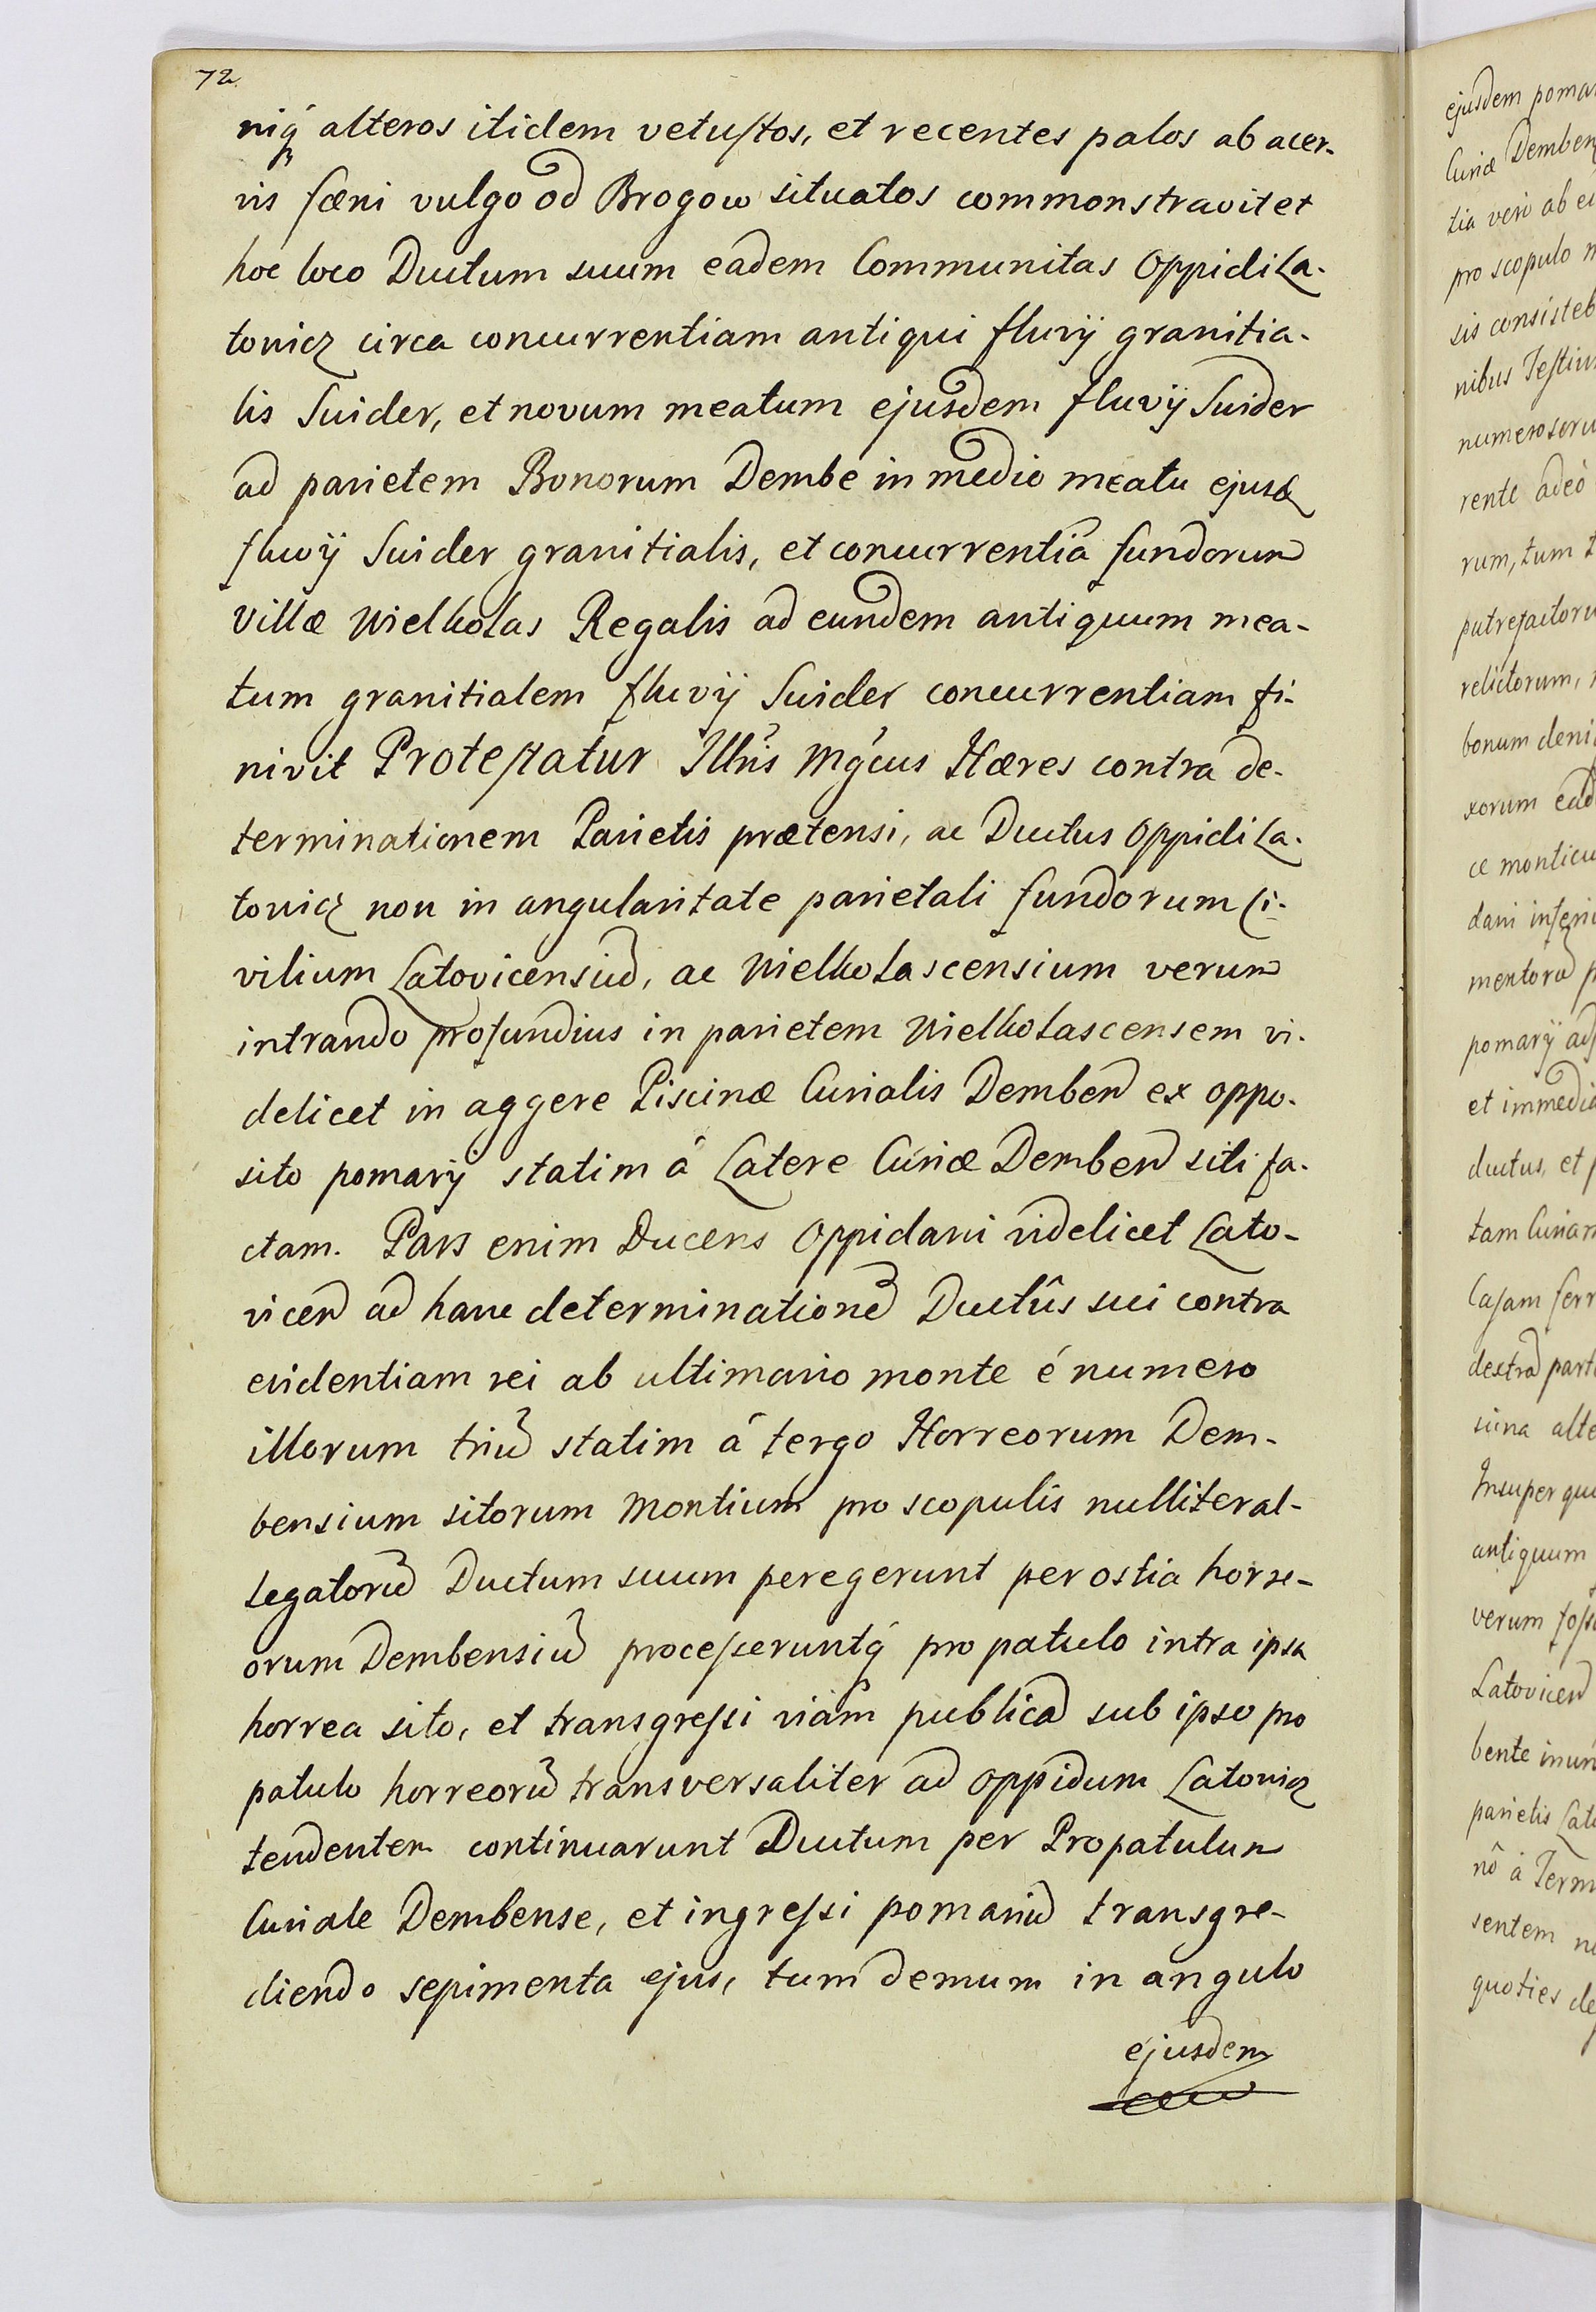 72.
niq́ alteros itidem vetuſtos, et recentes palos ab acer-
vis fœni vulgo od Brogow situatos commonstravit et
hoc loco Ductum suum eadem Communitas Oppidi La-
tovicz circa concurrentiam antiqui fluvij granitia-
lis Suider, et novum meatum ejusdem fluvij Suider
ad parietem Bonorum Dembe in medio meatu ejusd
fluvij Suider granitialis, et concurrentiâ fundorum
Villæ Wielholas Regalis ad eundem antiquum mea-
tum granitialem fluvij Suider concurrentiam fi-
nivit Proteſtatur Illr̃is Mg̃cus Hæres contra de-
terminationem Parietis prætensi, ac Ductus Oppidi La-
tovicz non in angularitate parietali fundorum Ci-
vilium Latovicensiũ, ac Wielholascensium verum
intrando profundius in parietem Wielholascensem vi-
delicet in aggere Piscinæ Curialis Demben̄ ex oppo-
sito pomarij statim á Latere Curiæ Demben̄ siti fa-
ctam. Pars enim Ducens Oppidani videlicet Lato-
vicen̄ ad hanc determinationẽ Ductûs sui contra
evidentiam rei ab ultimario monte é numero
illorum triũ statim á tergo Horreorum Dem-
bensium sitorum Montium pro scopulis nulliter al-
legatorũ Ductum suum peregerunt per ostia horre-
orum Dembensiũ proceſseruntq́ pro patulo intra ipsa
horrea sito, et transgreſsi viam publicã sub ipso pro
patulo horreorũ transversaliter ad oppidum Latovicz
tendentem continuarunt Ductum per Propatulum
Curiale Dembense, et ingreſsi pomariũ transgre-
diendo sepimenta ejus, tum demum in angulo
ejusdem
ejusdem poma
Curiæ Demben
tia vero ab
pro scopulo
sis consisteb
nibus Teſtiu
numerosoru
rente adeò
rum, tum
putrefactoru
relictorum,
bonum deni
xorum ead
ce monticu
dani inferi
mentorũ
pomarij ad
et immedia
ductus, et
tam Curiam
Caſam ferr
dextrâ part
alte
Insuper qu
antiquum
verum foſs
Latovicen̄
bente
parietis Lat
nõ à Term
sentem
quoties de